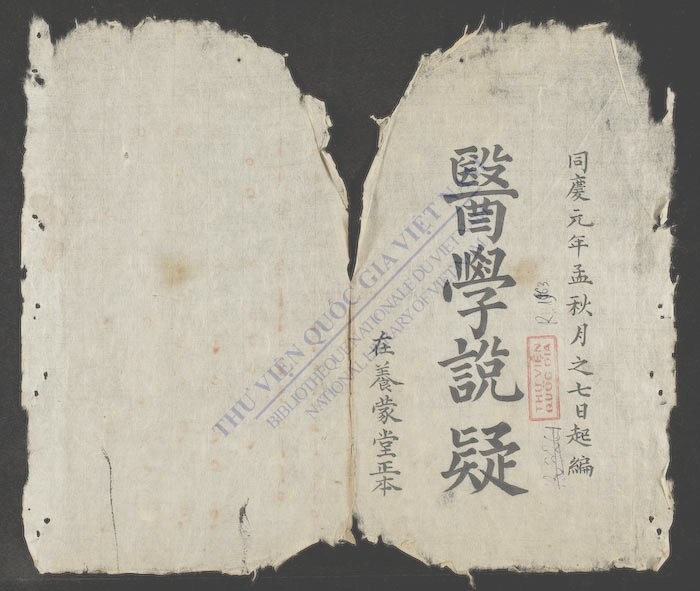 同慶元年孟秋月之七日起編
醫學說疑
在養蒙堂正本
R. 1963
THƯ VIỆN
QUỐC GIA
THƯ VIỆN QUỐC GIA VIỆT NAM
BIBLIOTHÈQUE NATIONALE DU VIETNAM
NATIONAL LIBRARY OF VIETNAM